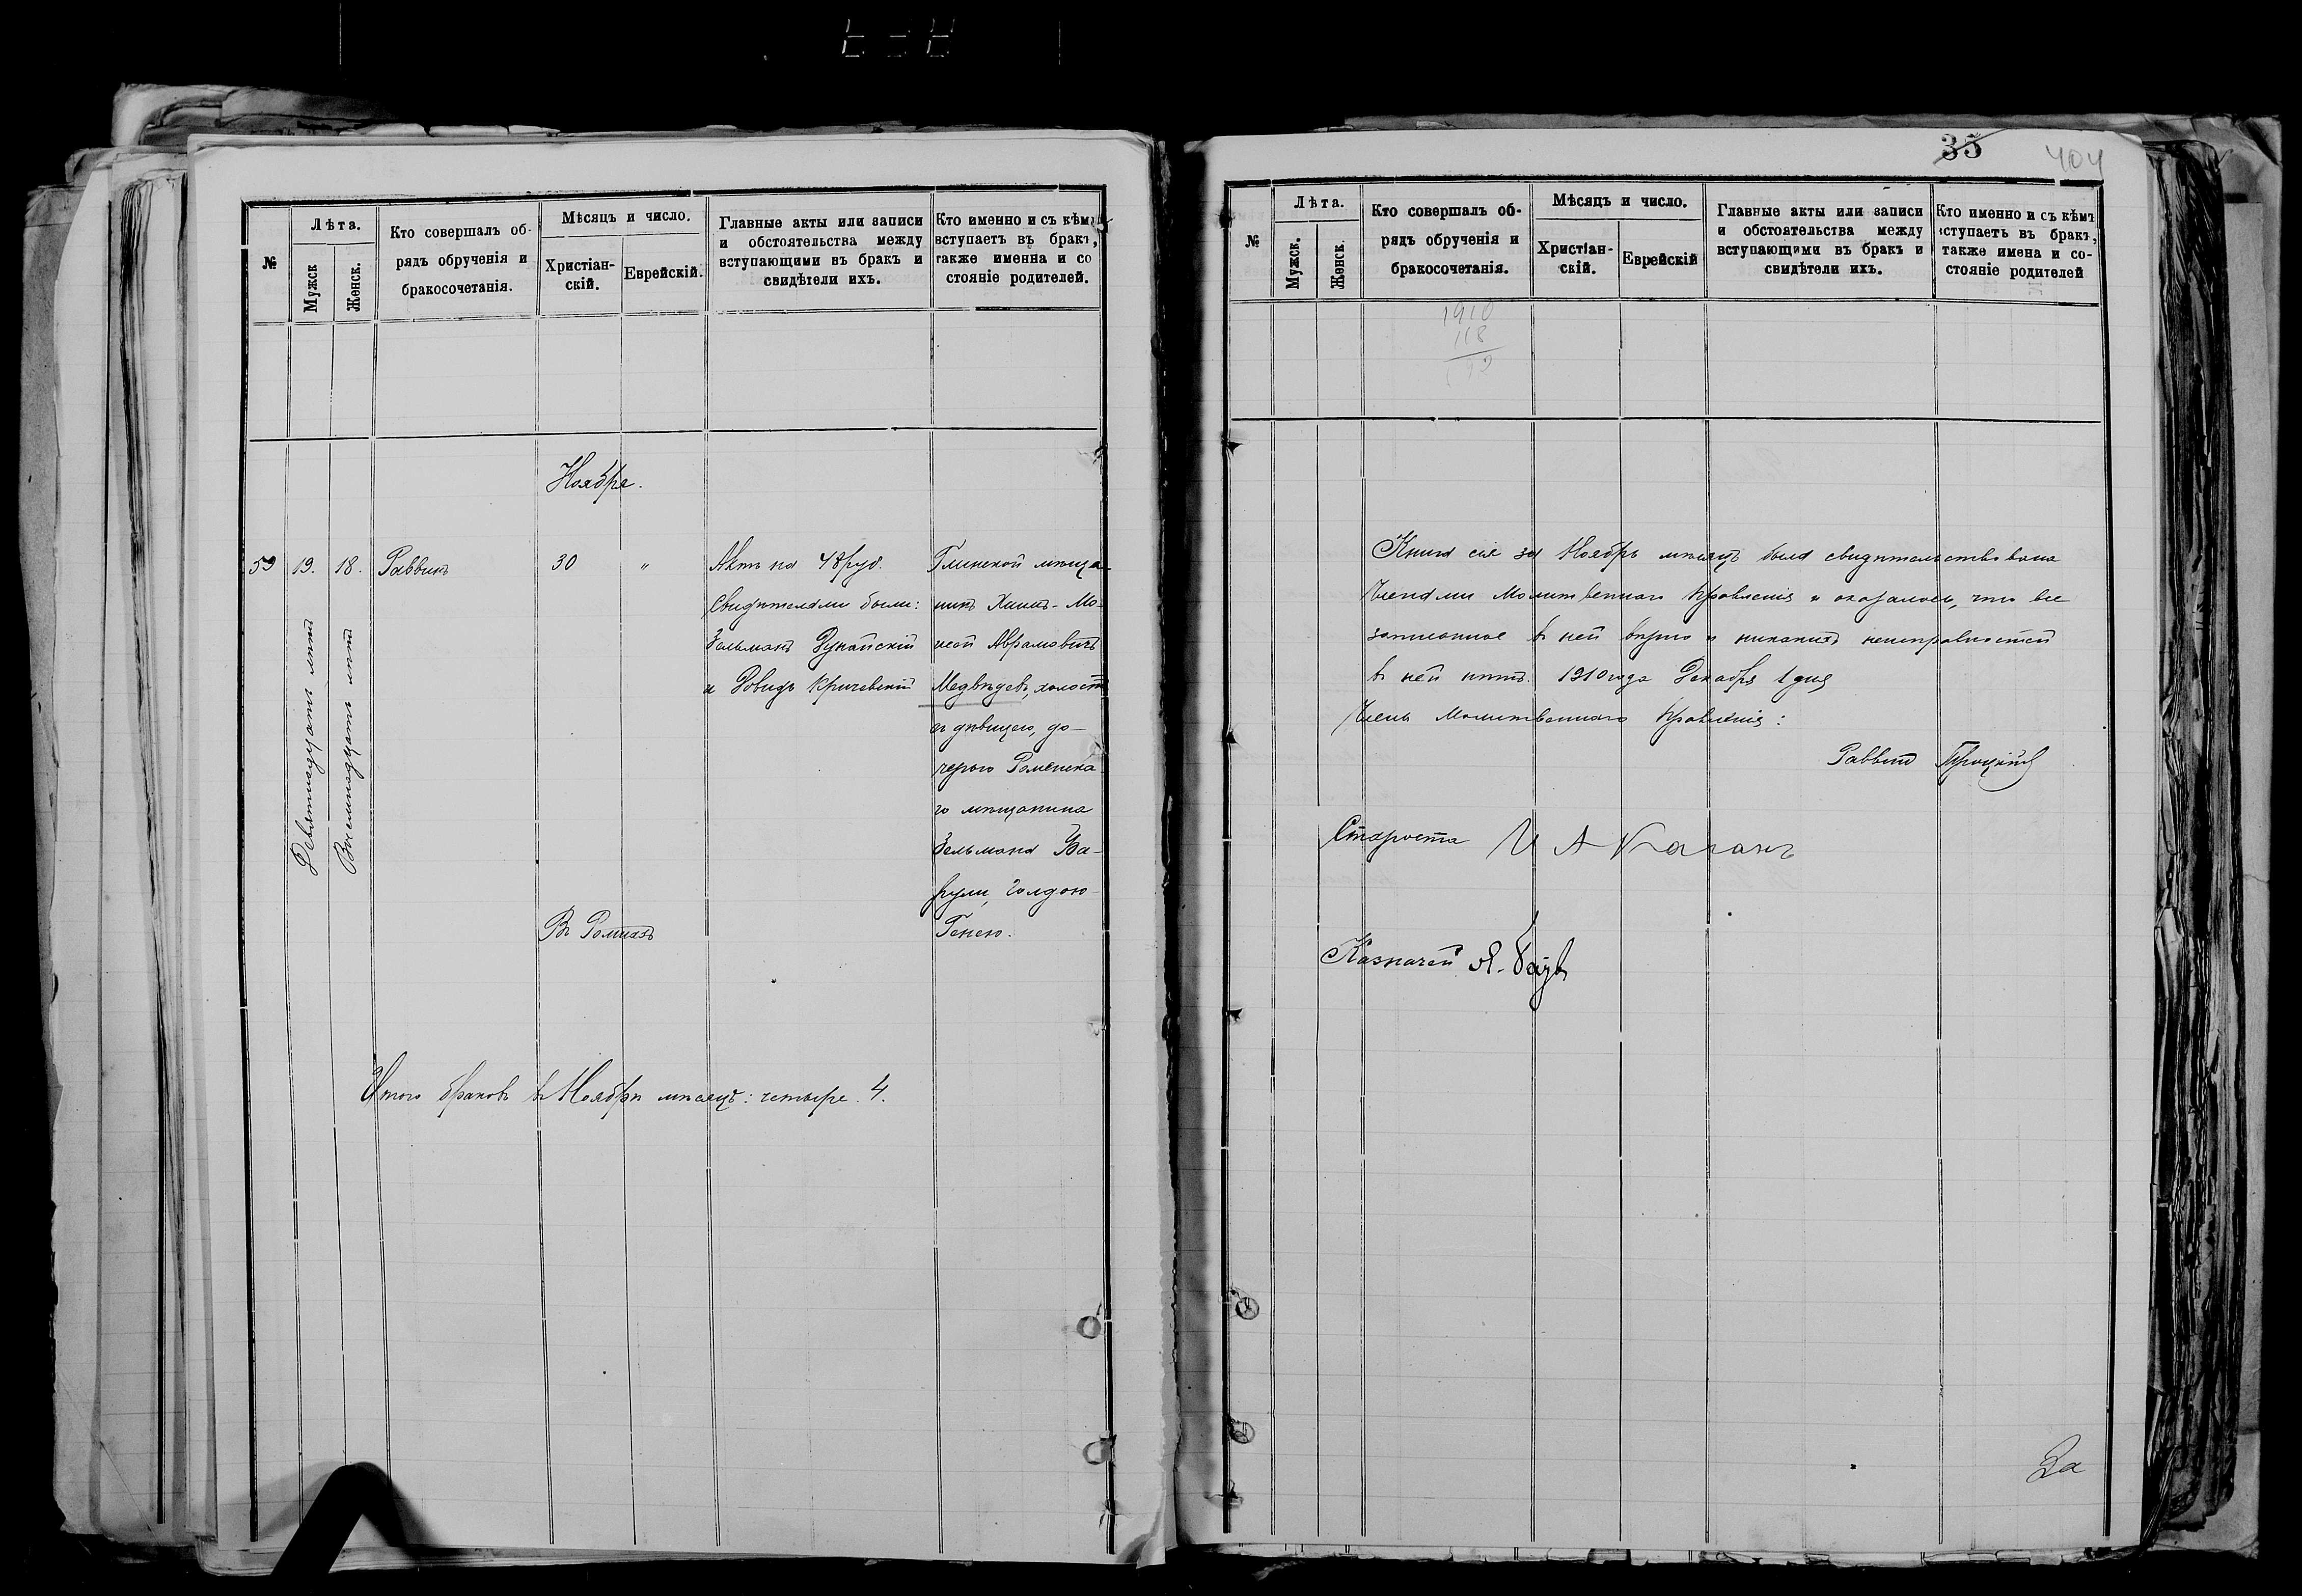 №
Лѣта.
Мужск
Женск.
Кто совершалъ об-
рядъ обрученія и
бракосочетанія.
Мѣсяцъ и число.
Христіан-
скій.
Еврейскій.
Главные акты или записи
и обстоятельства между
вступающими въ бракъ и
свидѣтели ихъ.
Кто именно и съ кѣмъ
вступаетъ въ бракъ,
также имена и со
стояніе родителей.
Ноября.
59
19.
18.
Девятнадцать лѣтъ
Восемнадцать лѣтъ
Раввинъ
30
"
Актъ на 48 руб.
Свидѣтелями были:
Зельманъ Дунайскій
и Довидъ Кричевскій
Глинской мѣща-
нинъ Хаимъ-Мо-
исей Абрамовичъ
Медвѣдевъ, холостъ
съ дѣвицею, до-
черью Роменска-
го мѣщанина
Зельмана
Голдою
Генею.
Въ Ромнахъ
Итого браковъ въ Ноябрѣ мѣсяцѣ: четыре. 4.
35
404
№
Лѣта.
Мужск.
Женск.
Кто совершалъ об-
рядъ обрученія и
бракосочетанія.
Мѣсяцъ и число.
Христіан-
скій.
Еврейскій
Главные акты или записи
и обстоятельства между
вступающими въ бракъ и
свидѣтели ихъ.
Кто именно и съ кѣмъ
вступаетъ въ бракъ,
также имена и со-
стояніе родителей
1910
118
Книга сія за Ноябрь мѣсяцъ была свидѣтельствована
Членами Молитвеннаго Правленія и оказалось, что все
записанное въ ней вѣрно и никакихъ неисправностей
въ ней нѣтъ. 1910 года Декабря 1 дня
Члены Молитвеннаго Правленія:
Раввинъ
Староста И А Каганъ
Казначей Я.